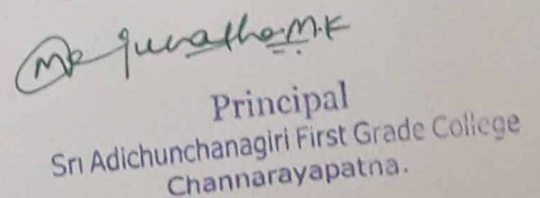 Manjunatha M.K
Principal
Sri Adichunchanagiri First Grade College
Channarayapatna.